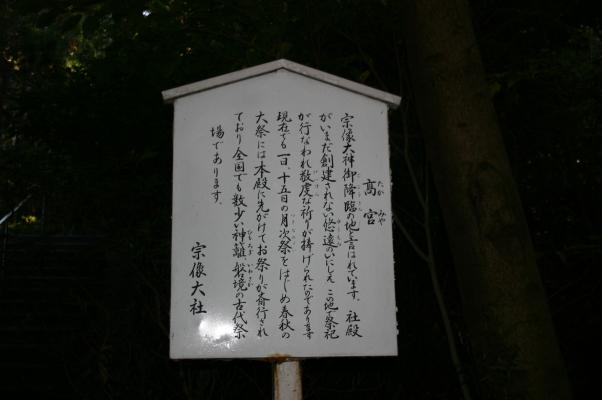 高宮
たかみや
宗像大神御降臨の地と言はれています。社殿
がいまだ創建されない悠遠のいにしえ、この地で祭祀
が行なわれ敬虔な祈りが捧げられたのであります
現在でも一日、十五日の月次祭をはじめ春秋の
大祭には本殿に先がけてお祭りが斎行され
ており全国でも数少い神籬、磐境の古代祭
場であります。
宗像大社